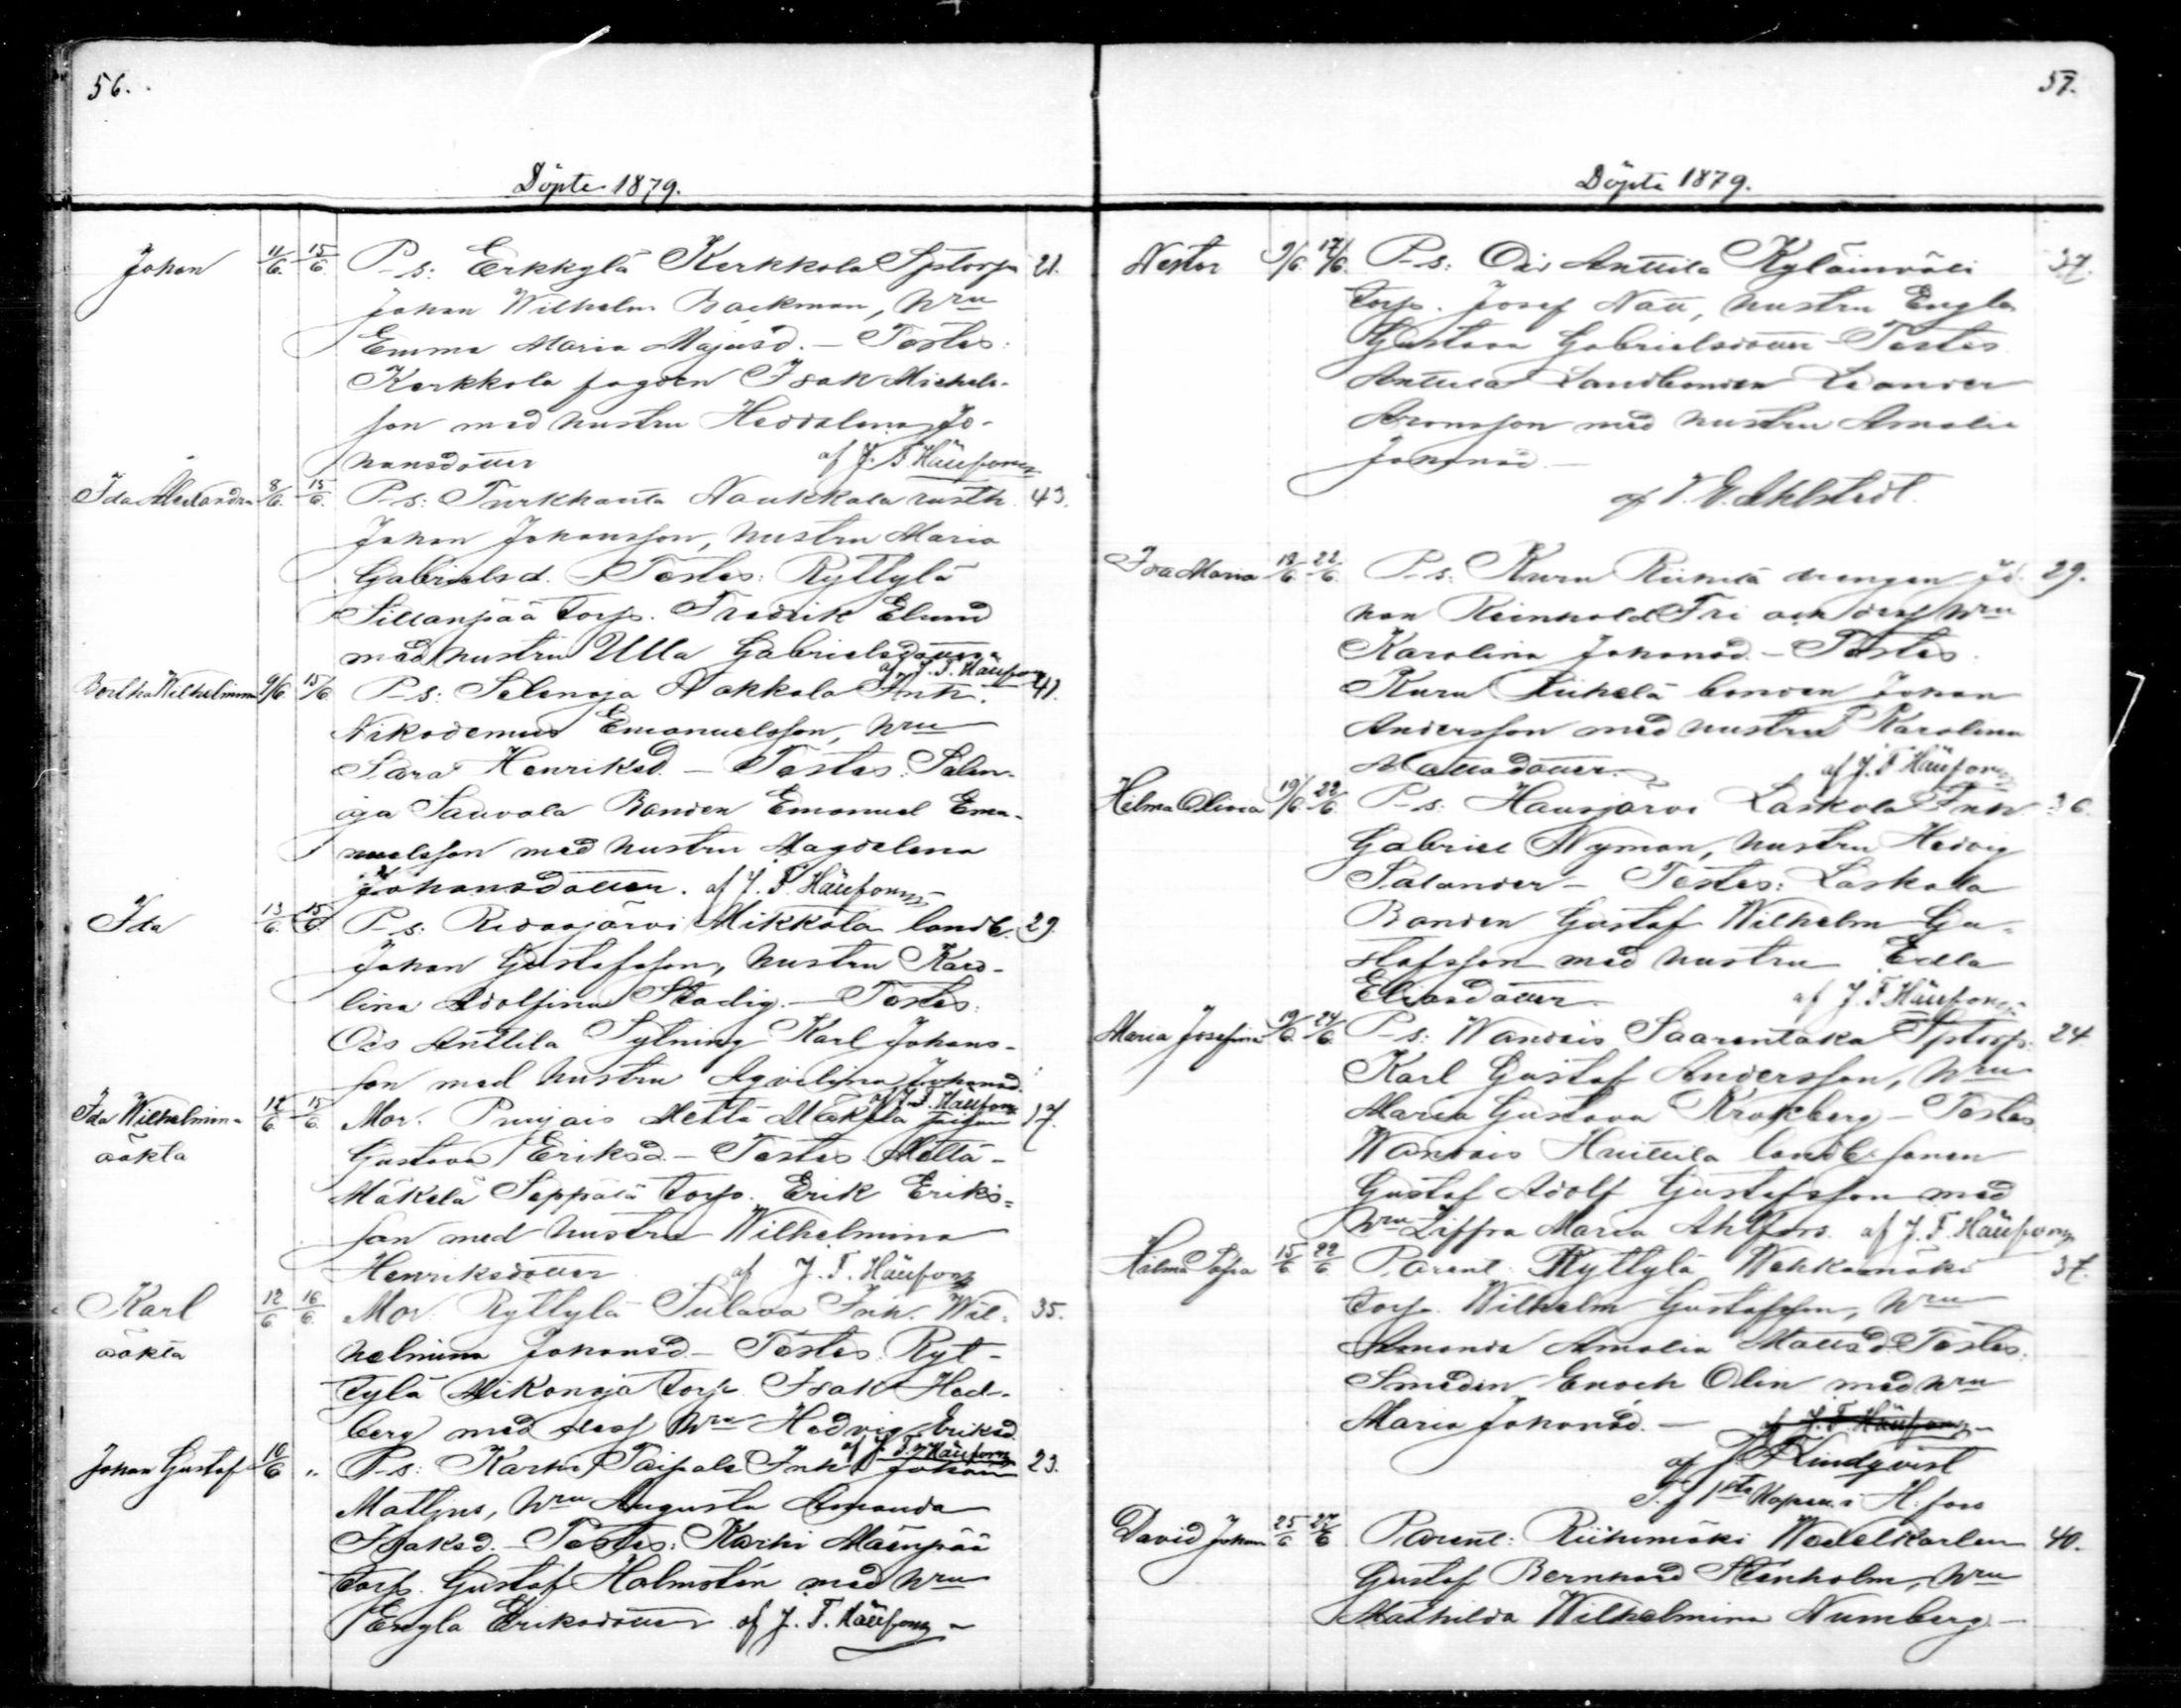 56.
Döpte 1879.
Johan 11/6. 15/6. P-s: Erkkylä Kerkkola Sptorp. 21.
Johan Wilhelm Backman, hru
Emma Maria Majasd. – Testes:
Kerkkola fogden Isak Michels-
son med hustru Heddalena Jo-
hansdotter af J. F. Häufom
Ida Alexandra 8/6. 15/6. P-s: Turkhauta Naukkala rusth. 43.
Johan Johansson, hustru Maria
Gabrielsd. – Testes: Ryttylä
Sillanpää torp. Fredrik Elund
med hustru Ulla Gabrielsdotter
af J. F. Häufom
Wilhelmina 9/6 15/6 P-s: Selenoja Nakkola Inh. 41.
Nikodemus Emanuelsson, hru
Sara Henriksd. – Testes: Salen-
oja Sauvola Bonden Emanuel Ema-
nuelsson med hustru Magdelena
Johansdotter. af J. F. Häufom
Ida 13/6. 15/6 P-s: Ridasjärvi Mikkola landb. 29.
Johan Gustafsson, hustru Karo-
lina Adolfina Stadig. – Testes:
Ois Anttila Sytning Karl Johans-
son med hustru Agvelina Johansd.
af J. F. Häufom
Ida Wilhelmina 12/6 15/6 Mor. Punjais Mettä Mäkelä 17.
oäkta Gustava Eriksd. – Testes: Mettä-
Mäkelä Seppälä torp. Erik Eriks-
son med hustru Wilhelmina
Henriksdotter af J. F. Häufom
Karl 12/6 16/6 Mor. Ryttylä Sulava Inh. Wil- 35.
oäkta helmina Johansd – Testes: Ryt-
tylä Mikonoja torp. Isak Hed-
berg med dess hru Hedvig Eriksd.
af J. F. Häufom
Johan Gustaf 10/6 " P-s: Karhi Taipale Inh. Johan 23.
Mattjus, hru Augusta Amanda
Isaksd. – Testes: Karhi Mäenpää
torp. Gustaf Holmstén med hru
Engla Eriksdotter af J. F. Häufom
57.
Döpte 1879.
Nestor 9/6 17/6. P-s: Ois Anttila Kyläinväli 37.
torp. Josef Nau, hustru Engla
Gustava Gabrielsdotter – Testes
Anttila Landbonden Leander
Aronsson med hustru Amalia
Johansd. –
af V. E. Ahlstedt.
Ida Maria 12/6 22/6 P-s: Kuru Riihelä drengen Jo- 29.
han Reinhold Fri och dess hru
Karolina Johansd. – Testes.
Kuru Riihelä bonden Johan
Andersson med hustru Karolina
Mattsdotter. af J. F. Häufom
Hilma Olivia 19/6 22/6. P-s: Hausjärvi Laskola Inh 36.
Gabriel Nyman, hustru Hedvig
Salander – Testes: Laskola
Bonden Gustaf Wilhelm Gu-
stafsson med hustru Edla
Eliasdotter. af J. F. Häufom
Maria Josefina 19/6. 24/6. P-s: Wantais Saarentaka Sptorp. 24
Karl Gustaf Andersson, hru
Maria Gustava Krokberg – Testes
Wantais Huittila landb. sonen
Gustaf Adolf Gustafsson med
hru Zippra Maria Ahlfors. af J. F. Häufom
Hilma Sofia 15/6 22/6 Parent: Ryttylä Wehkamäki 37.
torp. Wilhelm Gustafsson, hru
Amanda Amalia Mattsd. Testes.
Smeden Enoch Olin med hru
Maria Johansd. – af J. F. Häufom
af J. Lindqvist
T. f. 1sta Kapell. i H:fors
David Johan 25/6 27/6 Parent: Riihimäki Wexelkarlen 40.
Gustaf Bernhard Stenholm, hru
Mathilda Wilhelmina Numberg –